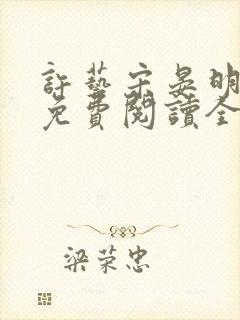 許藝宋晏明
免費閱讀全
梁荣忠